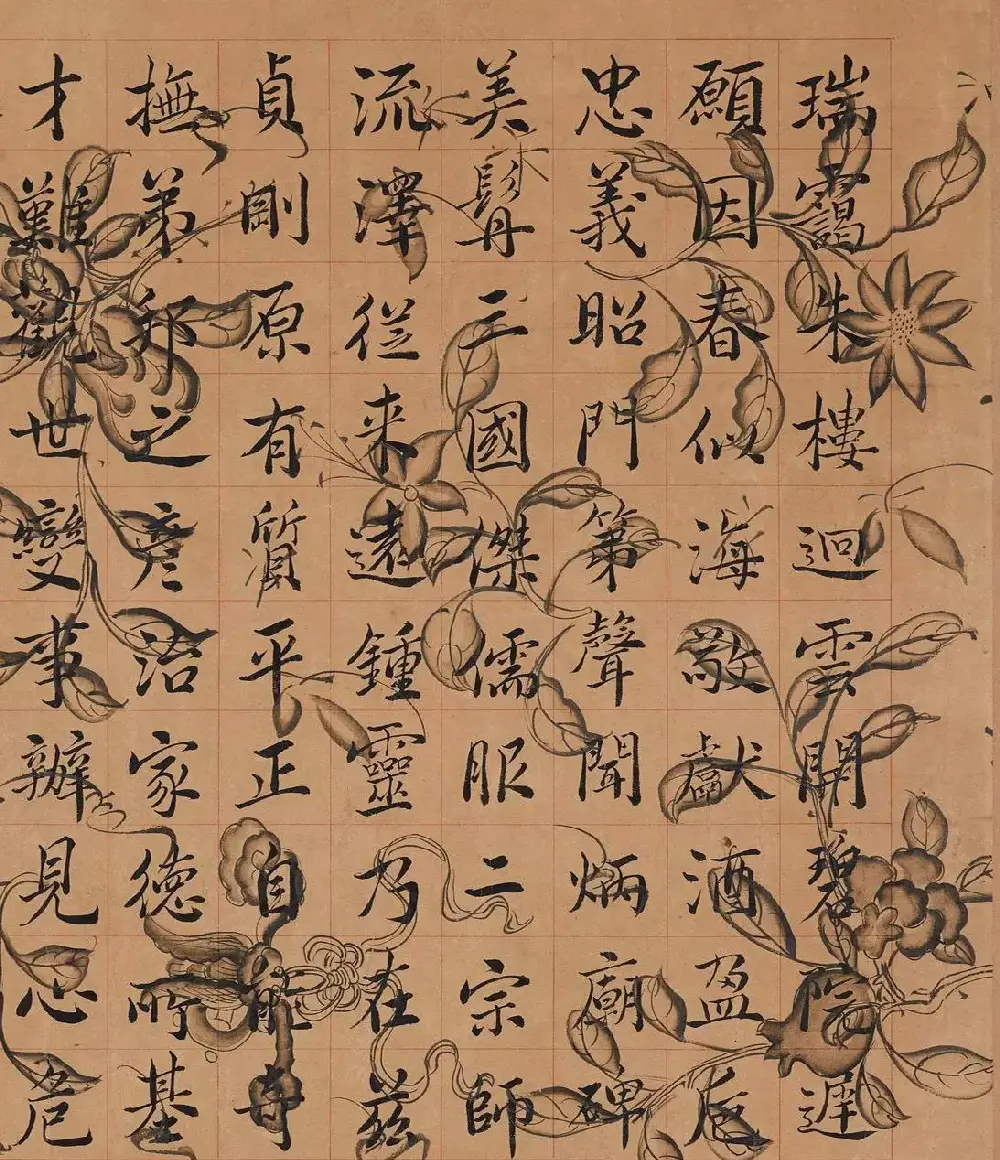 瑞靄朱樓逈雲開碧院遲
願因春似海敬獻酒盈卮
忠義昭門第聲聞炳廟碑
美髯三國傑儒服二宗師
流澤從来遠鍾靈乃在茲
貞剛原有質平正自能奇
撫弟邦之彥治家德所基
才難觀世變事辦見心危